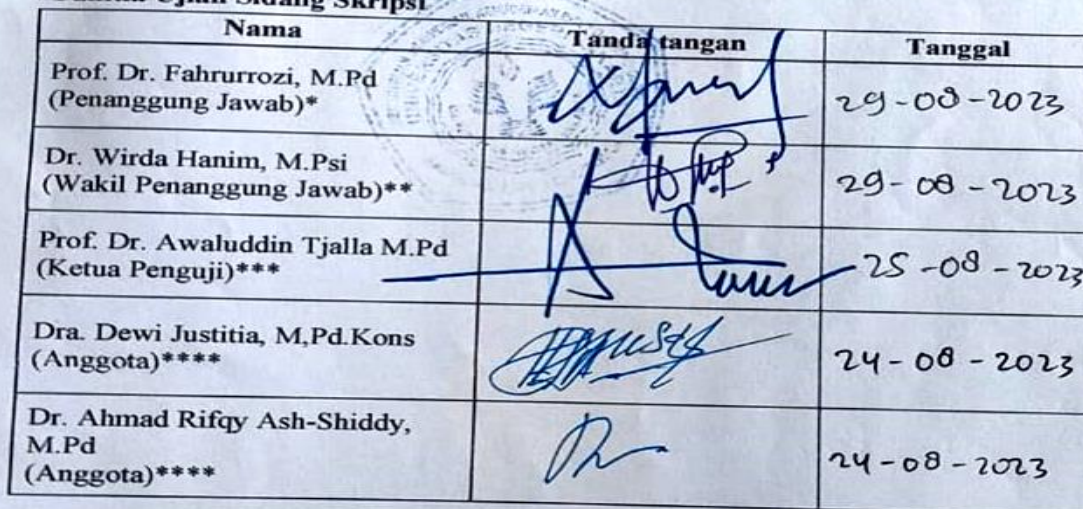 Ujian Sidang Skripsi
Nama Tanda tangan Tanggal
Prof. Dr. Fahrurrozi, M.Pd
(Penanggung Jawab)*
29-08-2023
Dr. Wirda Hanim, M.Psi
(Wakil Penanggung Jawab)**
29-08-2023
Prof. Dr. Awaluddin Tjalla M.Pd
(Ketua Penguji)***
25-08-2023
Dra. Dewi Justitia, M,Pd.Kons
(Anggota)****
24-08-2023
Dr. Ahmad Rifqy Ash-Shiddy,
M.Pd
(Anggota)****
24-08-2023